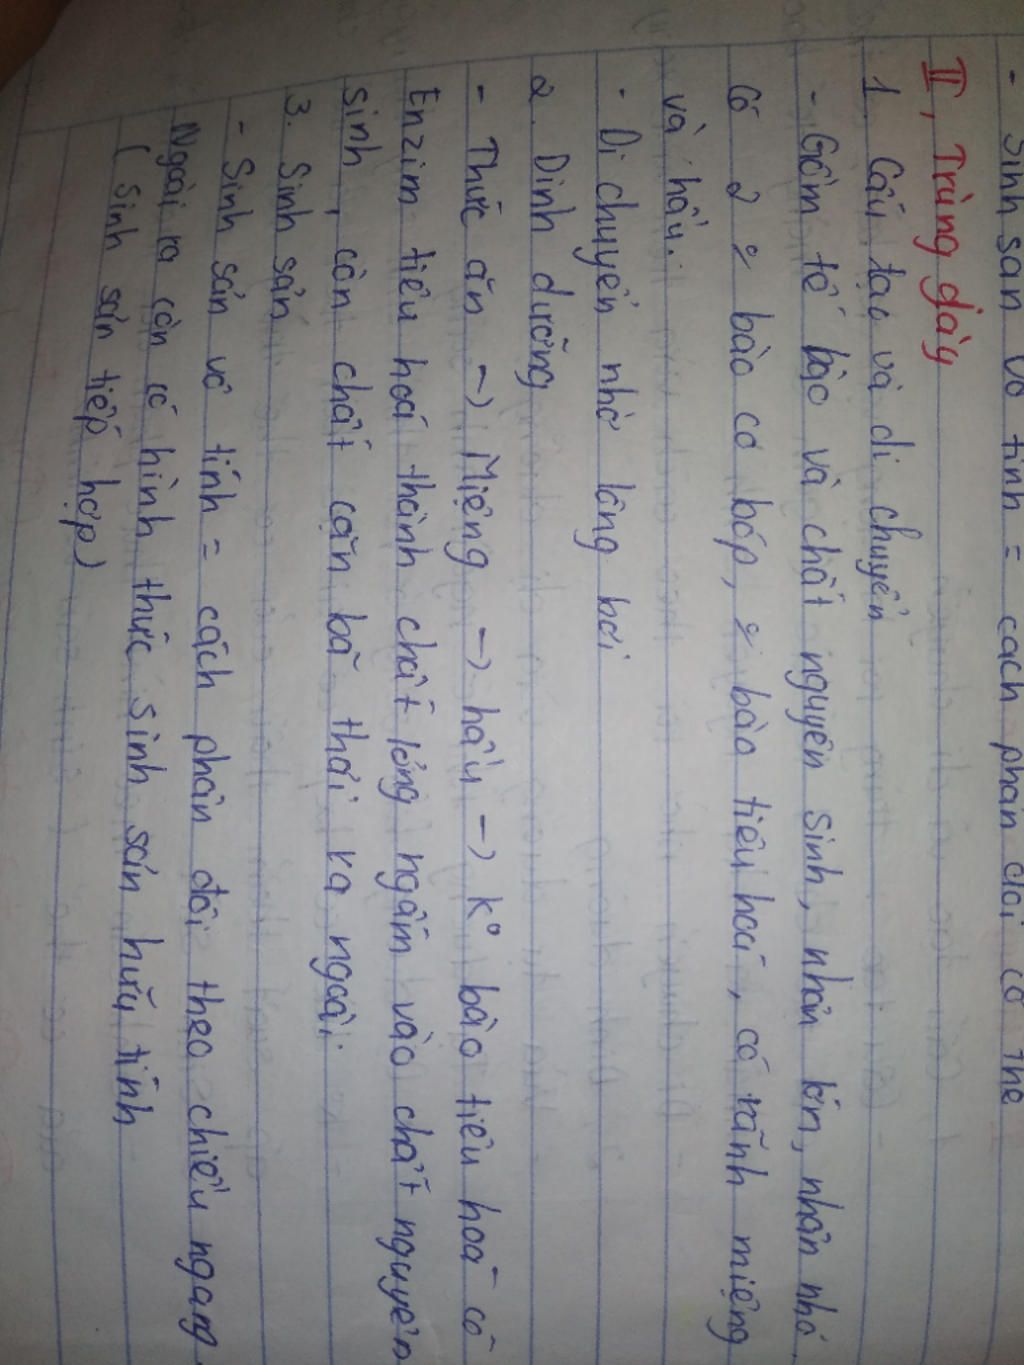 - Sinh sản vô tính = cách phân đôi cơ thể
II, Trùng giày
1. Cấu tạo và di chuyển
- Gồm tế bào và chất nguyên sinh, nhân lớn, nhân nhỏ.
Có 2 bào co bóp, bào tiêu hoá, có rãnh miệng
và hầu.
- Di chuyển nhờ lông bơi
2. Dinh dưỡng
- Thức ăn -> Miệng -> hầu -> k° bào tiêu hoá có
Enzim tiêu hoá thành chất lỏng ngấm vào chất nguyên
sinh, còn chất cặn bã thải ra ngoài
3. Sinh sản
- Sinh sản vô tính = cách phân đôi theo chiều ngang.
Ngoài ra còn có hình thức sinh sản hữu tính
(sinh sản tiếp hợp)